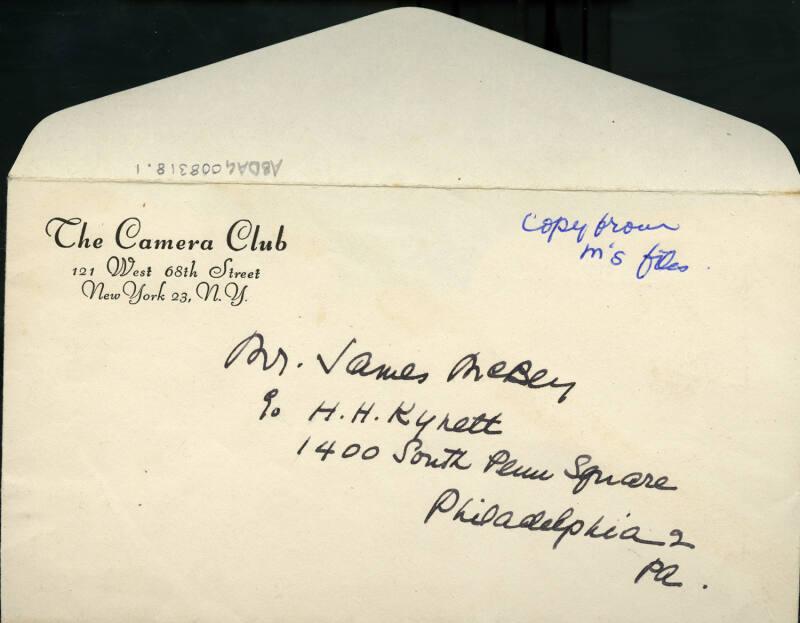 ABDAG008318.1
The Camera Club
121 West 68th Street
New York 23, N.Y.
Copy from
M's files.
Mr. James McBey
c/o H.H. Kynett
1400 South Penn Square
Philadelphia 2
Pa.